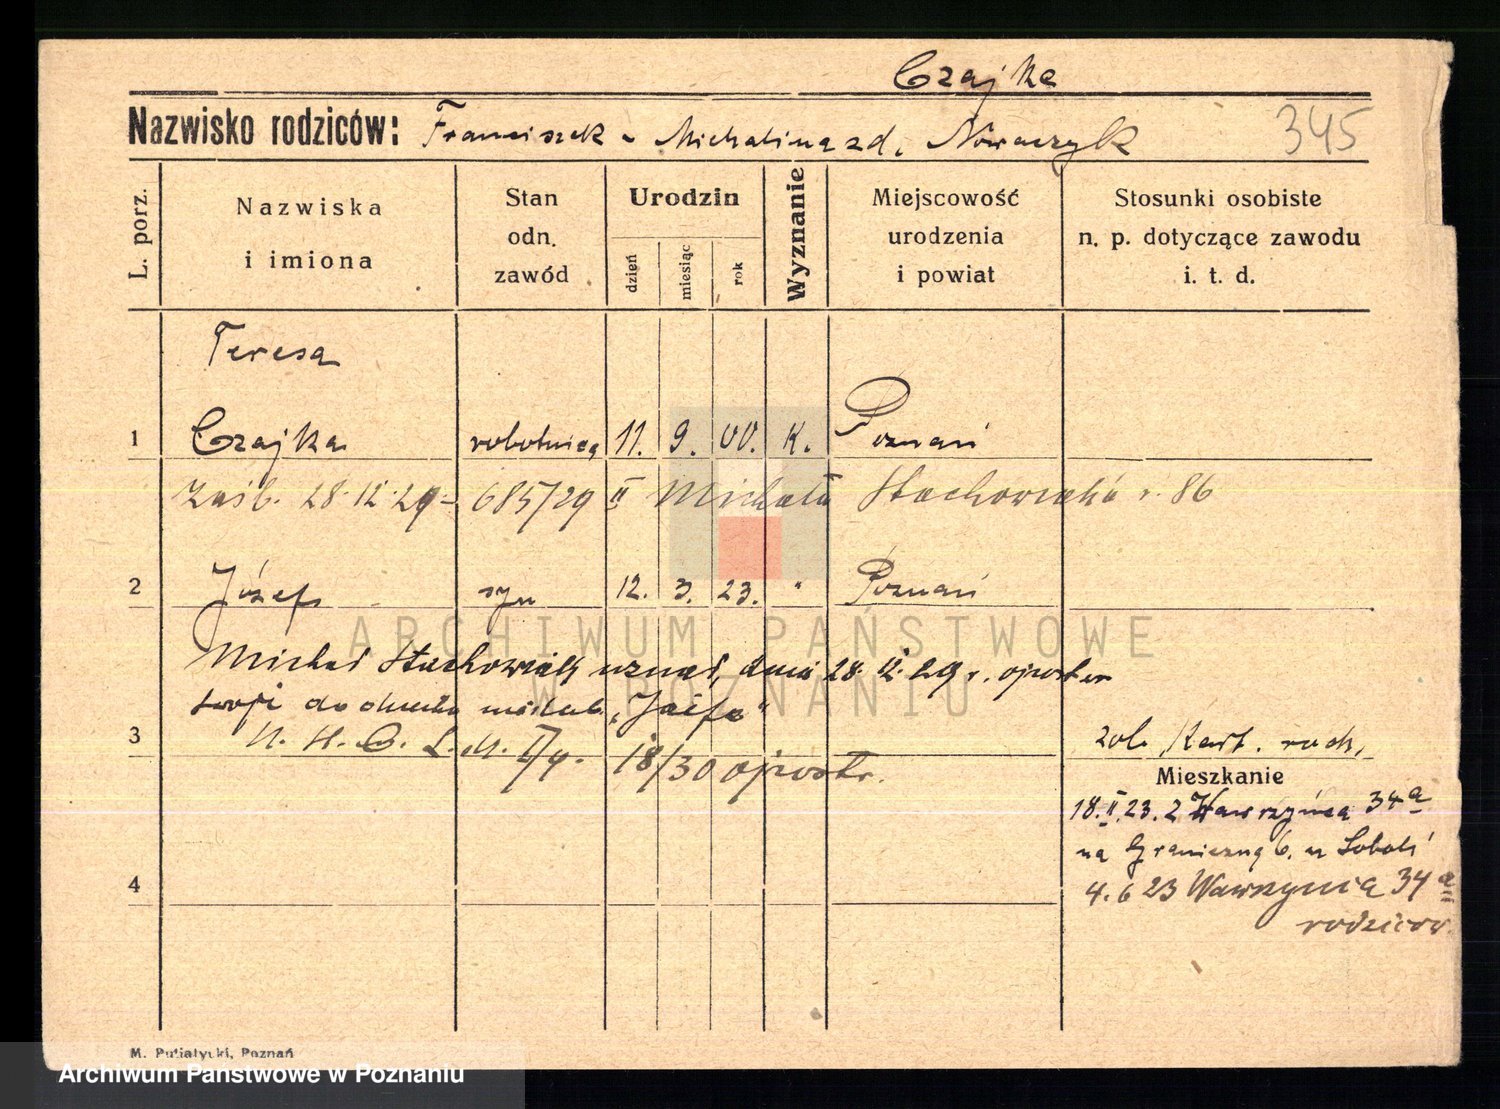 Czajka
Nazwisko rodziców: Franciszek - Michalina zd. Nowaczyk 345
L. porz.
Nazwiska i imiona
Stan odn. zawód
Urodzin
dzień miesiąc rok
Wyznanie
Miejscowość urodzenia i powiat
Stosunki osobiste n. p. dotyczące zawodu i. t. d.
Teresa
1 Czajka robotnica 11. 9. 00. k. Poznań
Zaśb. 28.12.29 - 685/29 II Michała Stachowiaka r. 86
2 Józef syn 12. 3. 23. " Poznań
Michał Stachowiak uznał, dnia 28.12.29 r.
"Józefa"
3
18/30
zob. Kart. rodz.
Mieszkanie
18.II.23. z Wawrzyńca 34a
na Graniczną 6. u
4. 6 23 Wawrzyńca 34a
rodziców.
4
M. Putiatycki, Poznań
Archiwum Państwowe w Poznaniu
ARCHIWUM PAŃSTWOWE
W POZNANIU